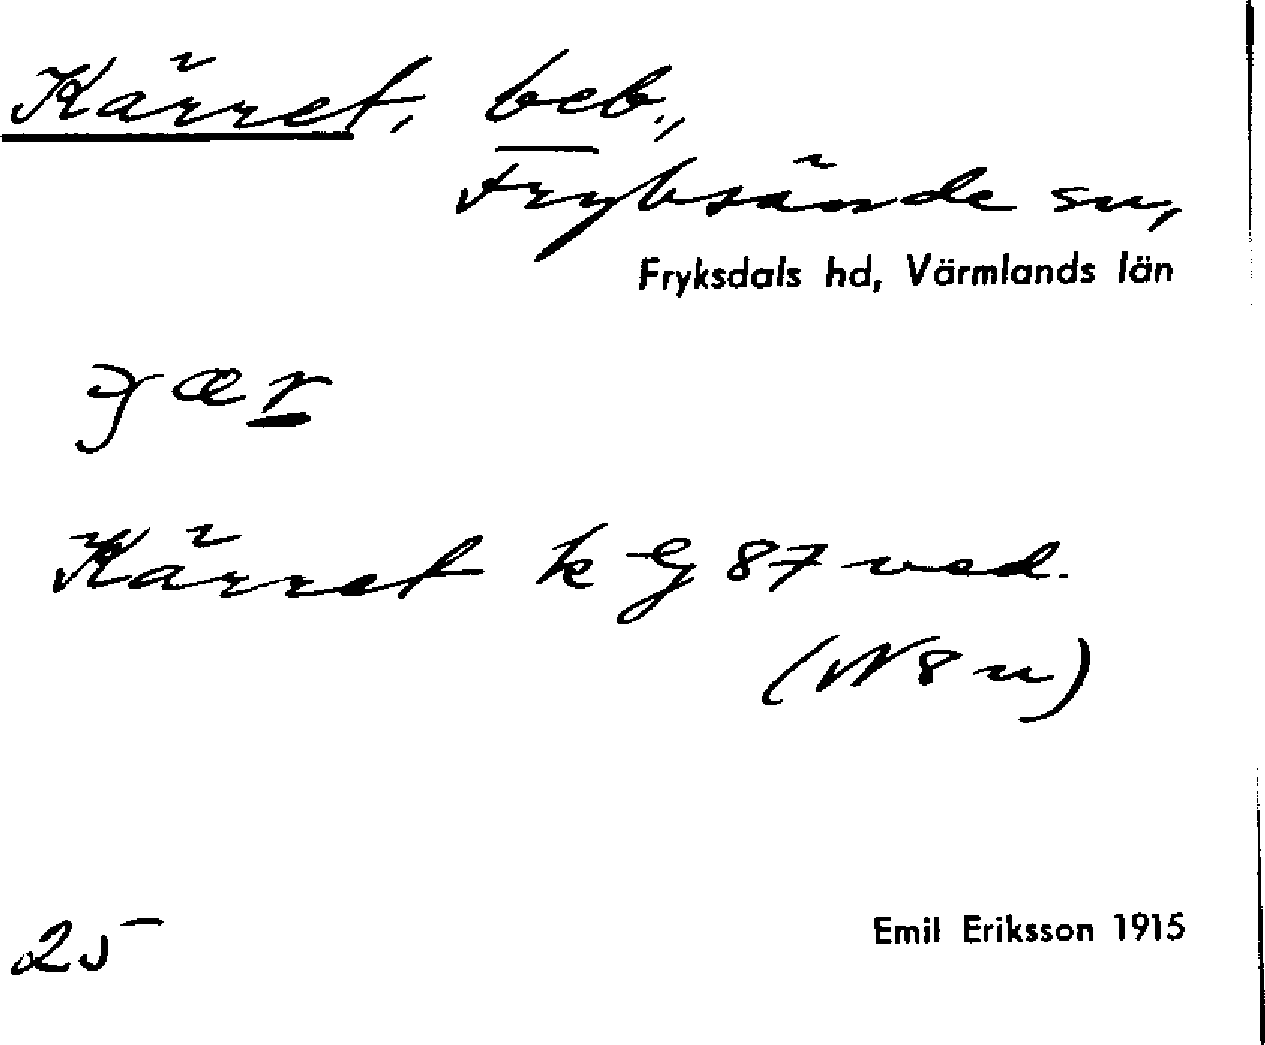 Kärret, beb.,
Fryksände sn,
Fryksdals hd, Värmlands län
Kärret k G 87 ved.
(N 8 u)
25
Emil Eriksson 1915